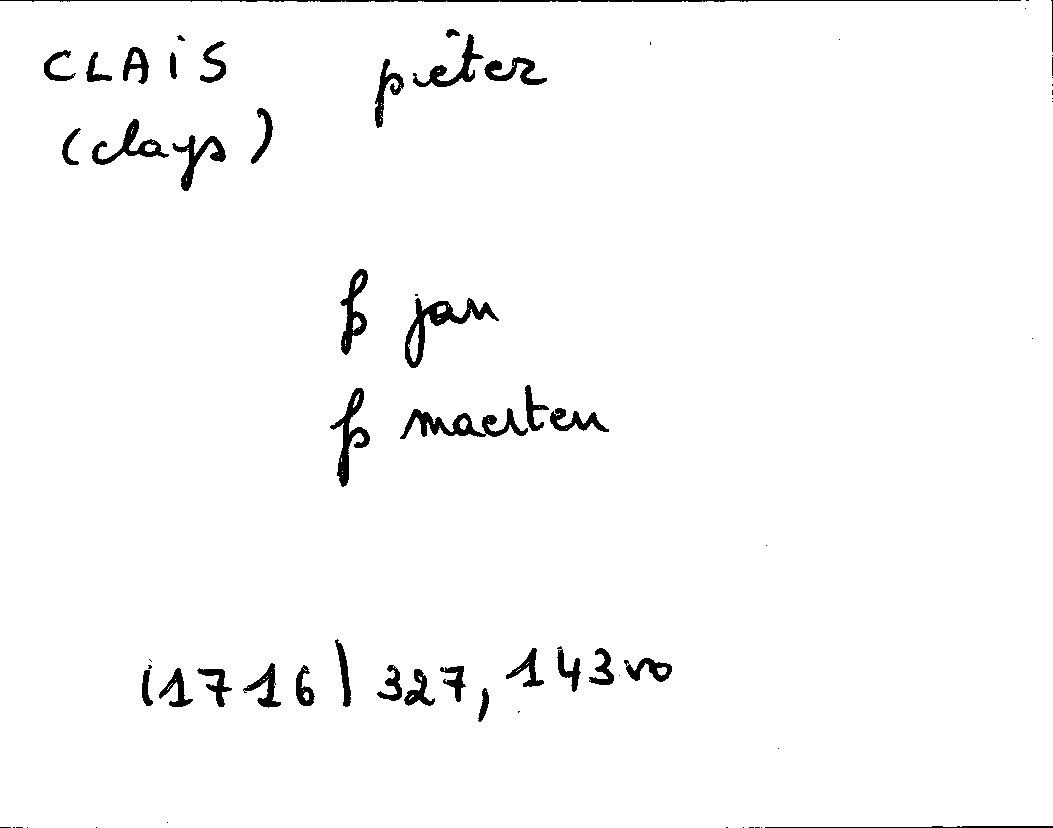 CLAIS pieter
(clays)
fs jan
fs maerten
(1716) 327, 143vo